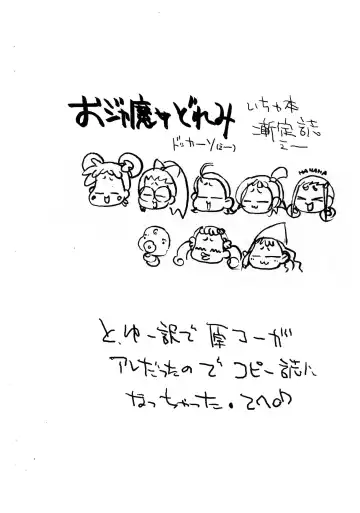 おジャ魔女どれみ
いちゃ本
漸定誌
ドッカ〜ソ(ミー)
ミー
HANAHA
と、ゆー訳で 原コーが
アレだったので コピー誌に
なっちゃった。てへ♪